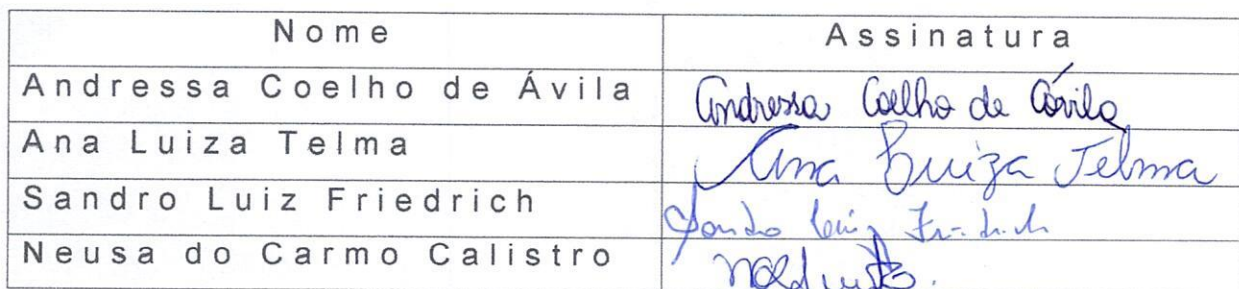 Nome Assinatura
Andressa Coelho de Ávila Andressa Coelho de Ávila
Ana Luiza Telma Ana Luiza Telma
Sandro Luiz Friedrich Sandro Luiz Friedrich
Neusa do Carmo Calistro